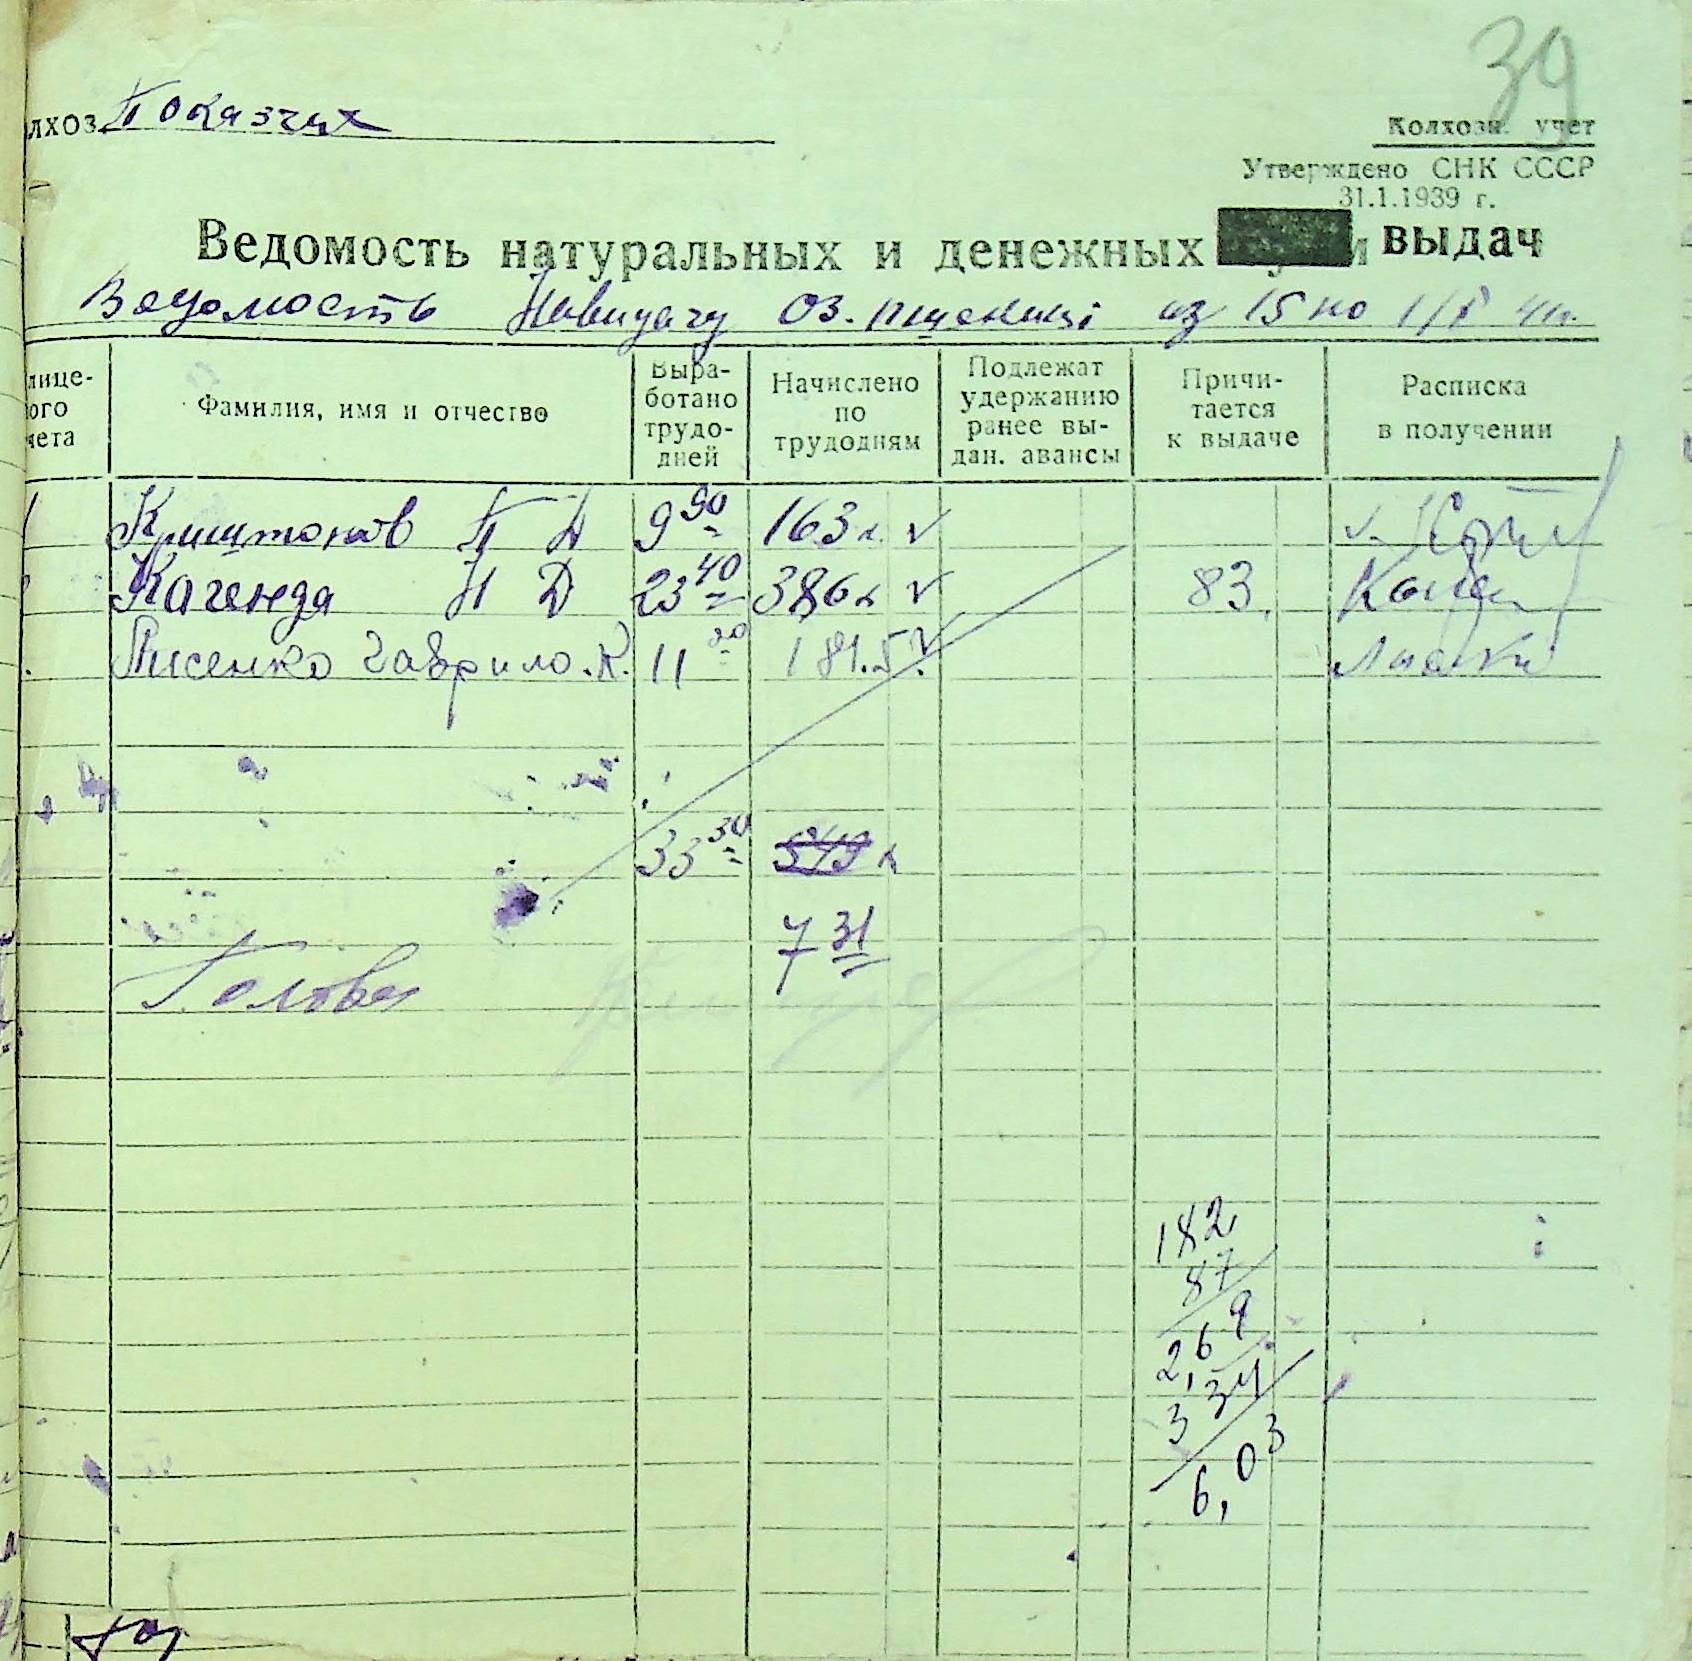 39
лхоз Показчик
Колхозн. учет
Утверждено СНК СССР
31.1.1939 г.
Ведомость натуральных и денежных выдач
Ведомость Навидачу оз. пшениці из 15 по
лице- ого чета
Фамилия, имя и отчество
Выра- ботано трудо- дней
Начислено по трудодням
Подлежат удержанию ранее вы- дан. авансы
Причи- тается к выдаче
Расписка в получении
П Д 9 90 163 к. v v.
Каченда И Д 23 40 386 к v 83.
Лисенко Гаврило. К. 11 20 181.5 v
33 30 549 к
7 31
Голова
182
87
2,69
3 34
6,03